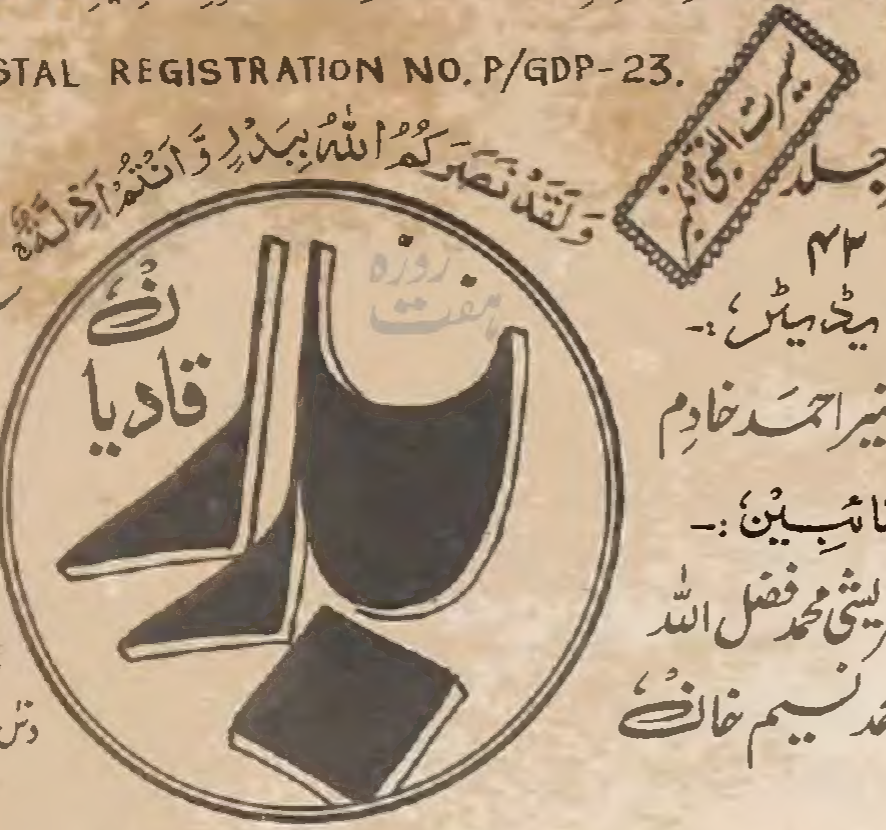 POSTAL REGISTRATION NO. P/GDP-23.
وَلَقَدْ نَصَرَكُمُ اللهُ بِبَدْرٍ وَّاَنْتُمْ اَذِلَّةٌ
سیرت النبی نمبر
جلد
۴۳
ایڈیٹر:-
منیر احمد خادم
نائبین:-
قریشی محمد فضل اللہ
محمد نسیم خان
ہفت روزہ
بدر
قادیان